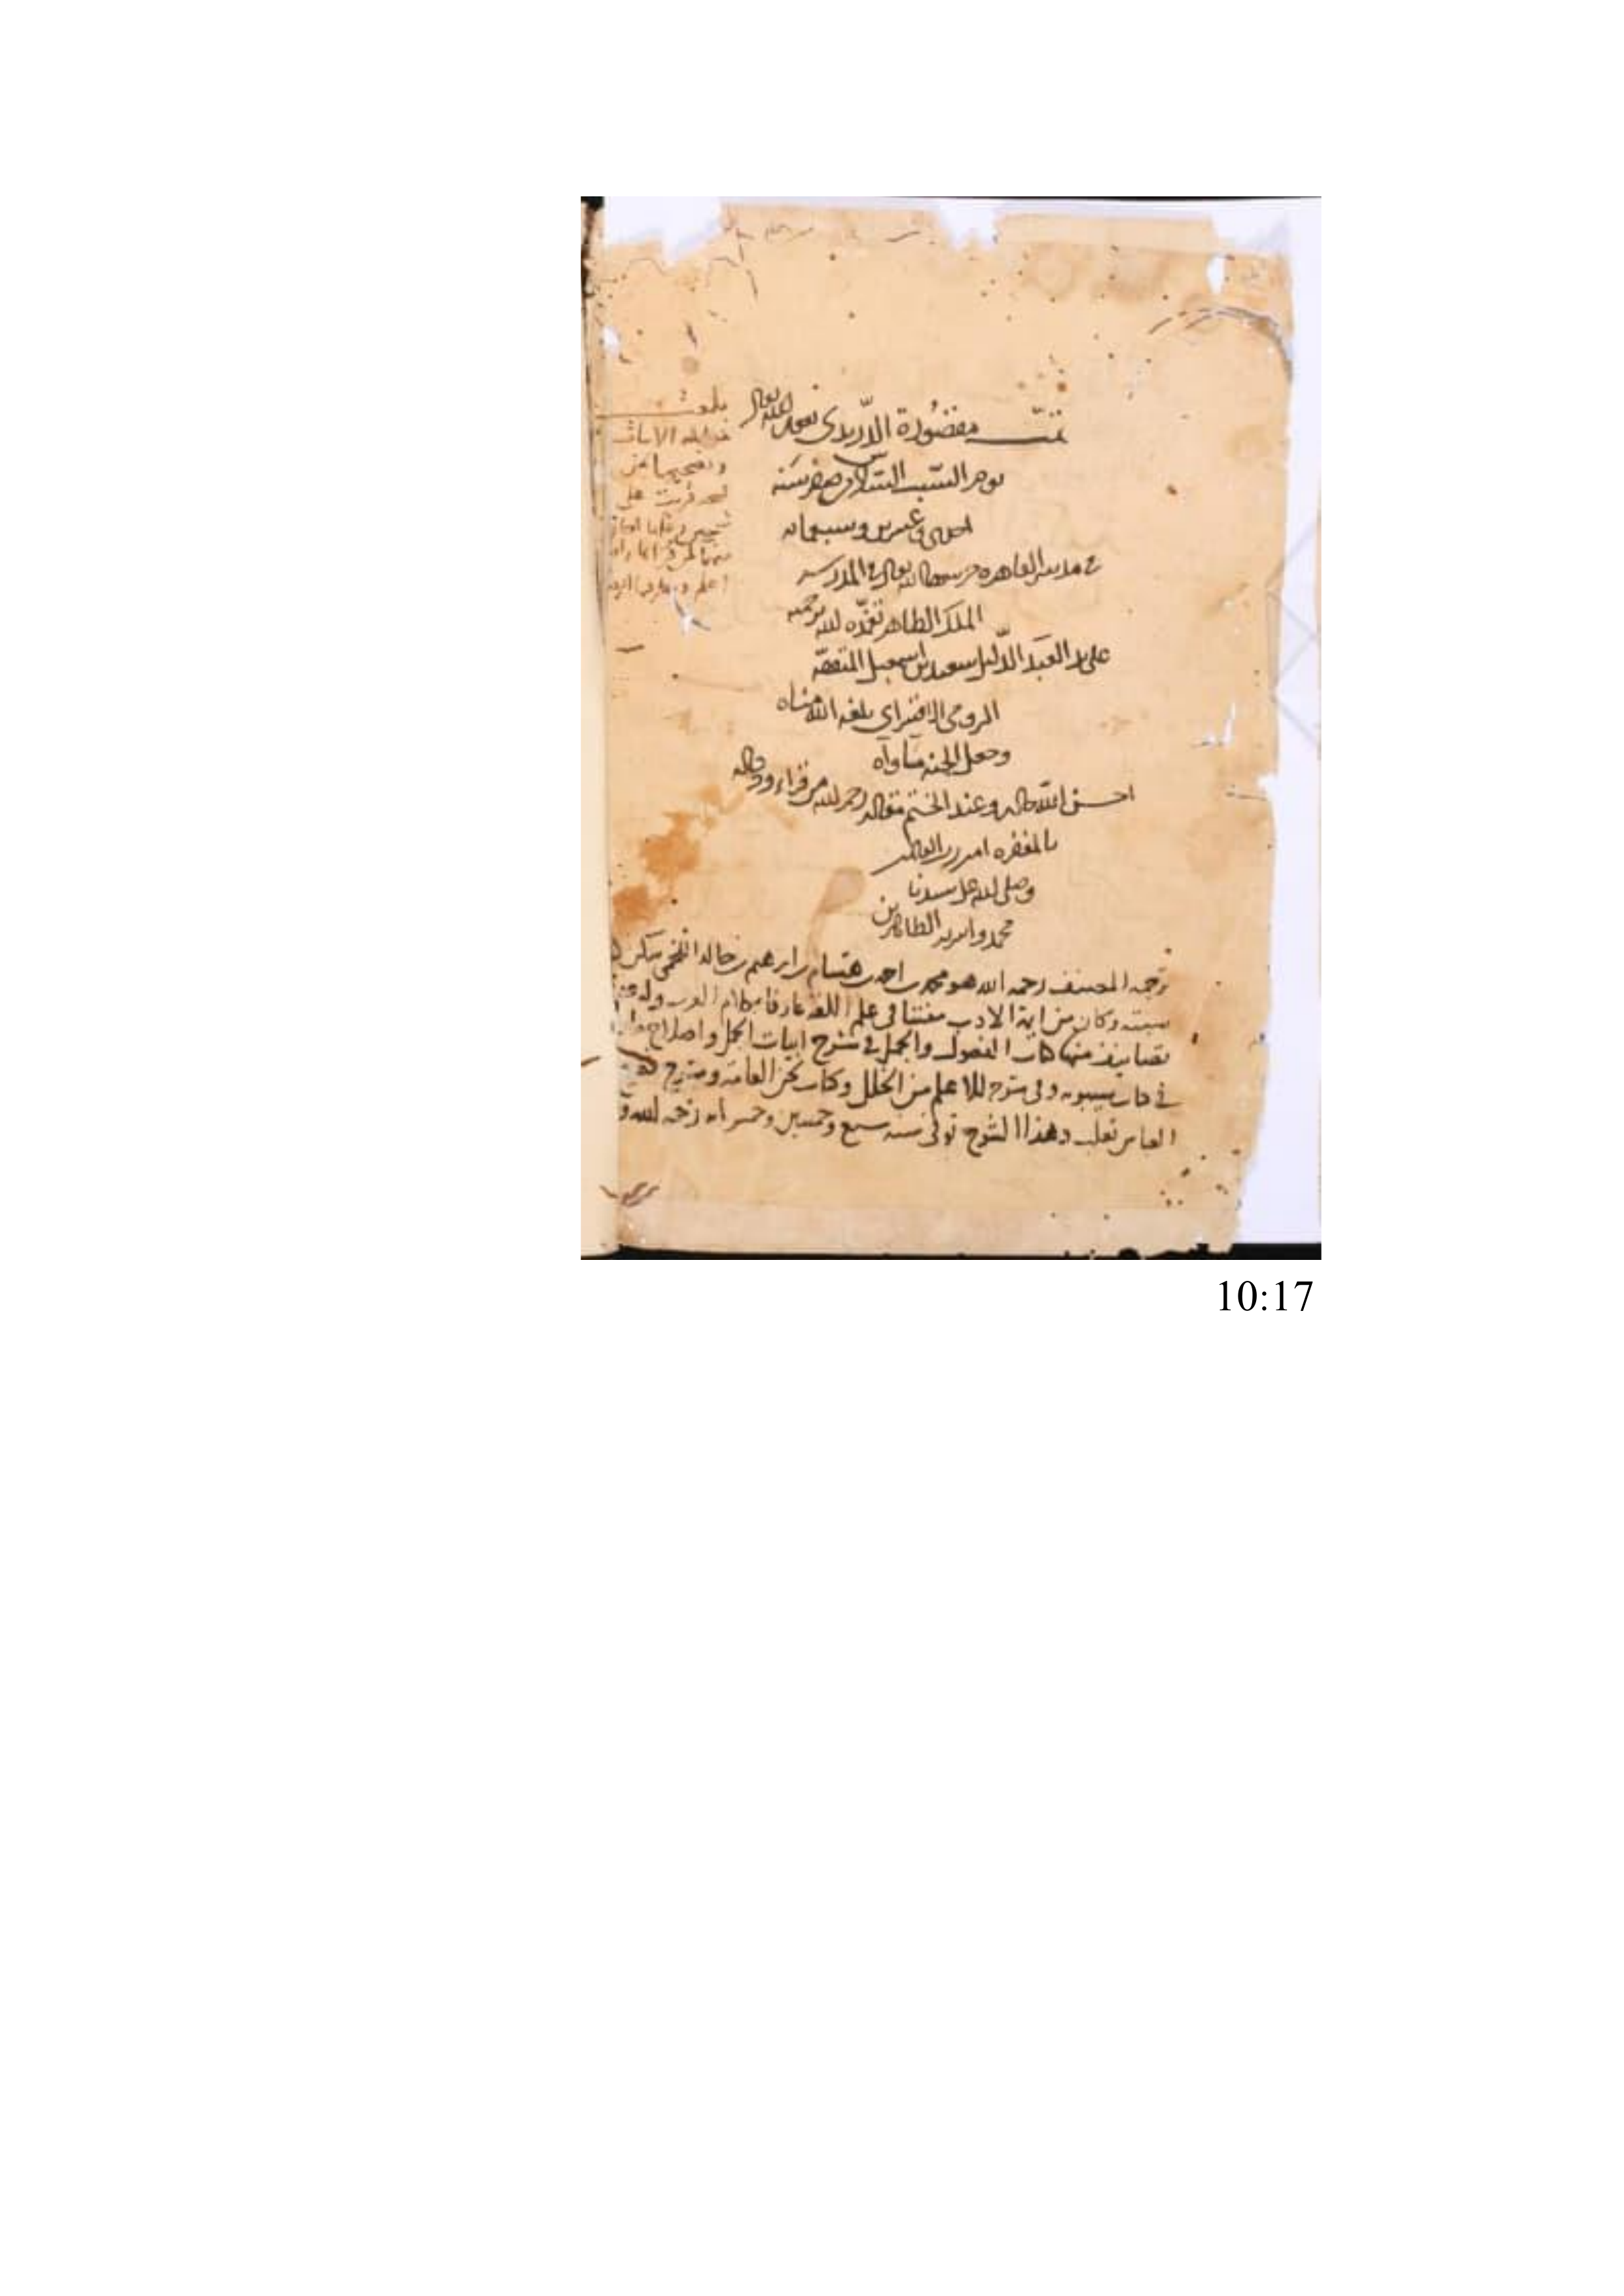 تمت مقصورة الدريدي بعون الله تعالى
يوم السبت السادس صفر سنه
احدى وعشرين وسبعمائه
في مدينه القاهره حرسها الله تعالى في المدرسه
الملك الظاهر تغمده الله برحمته
على يد العبد الذليل سعيد بن اسمعيل المتفقه
الرومي الاقسراي بلغه الله مناه
وجعل الجنه مأواه
احسن الله حاله وعند الختم مقاله رحم الله من قراء ودعا له
بالمغفره امين رب العالمين
وصلى الله على سيدنا
محمد واله الطاهرين
ترجمه المصنف رحمه الله هو محمد بن احمد بن هشام بن ابرهيم بن خالد اللخمي سكن
سبته وكان من ايمة الادب مفننا في علم اللغه عارفا بكلام العرب وله عدة
تصانيف منها كتاب الفصول والجمل في شرح ابيات الجمل واصلاح ما
في كتاب سيبويه وفي شرحه للاعلم من الخلل وكتاب لحن العامة وشرح
العباس ثعلب وهذا الشرح توفي سنه سبع وخمسين وخمس ايه رحمه الله
بلغت
مقابله الابيات
وتصحيحها عن
نسخه قريت على
اعلم
10:17